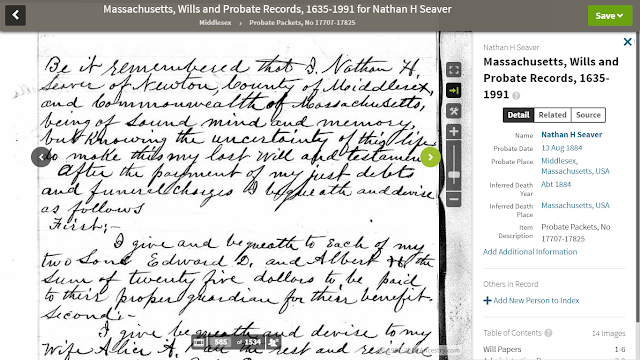 Massachusetts, Wills and Probate Records, 1635-1991 for Nathan H Seaver
Middlesex › Probate Packets, No 17707-17825
Save
Be it remembered that I, Nathan H.
Seaver of Newton, County of Middlesex,
and Commonwealth of Massachusetts,
being of sound mind and memory,
but knowing the uncertainty of this life
do make this my last Will and testament
After the payment of my just debts
and funeral charges I bequeath and devise
as follows
First:-
I give and bequeath to each of my
two Sons Edward D. and Albert H. the
Sum of twenty five dollars to be paid
to their proper guardian for their benefit.
Second:-
I give bequeath and devise to my
Wife Alice A. all the rest and residue
585 of 1534
ancestry.com
Nathan H Seaver
Massachusetts, Wills and
Probate Records, 1635-
1991
Detail Related Source
Name Nathan H Seaver
Probate Date 13 Aug 1884
Probate Place Middlesex,
Massachusetts, USA
Inferred Death Year Abt 1884
Inferred Death Place Massachusetts, USA
Item Description Probate Packets, No
17707-17825
Add Additional Information
Others in Record
Add New Person to Index
Table of Contents 14 Images
Will Papers 1-6